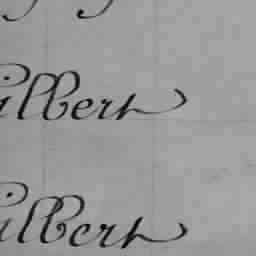 Gilbert
Gilbert